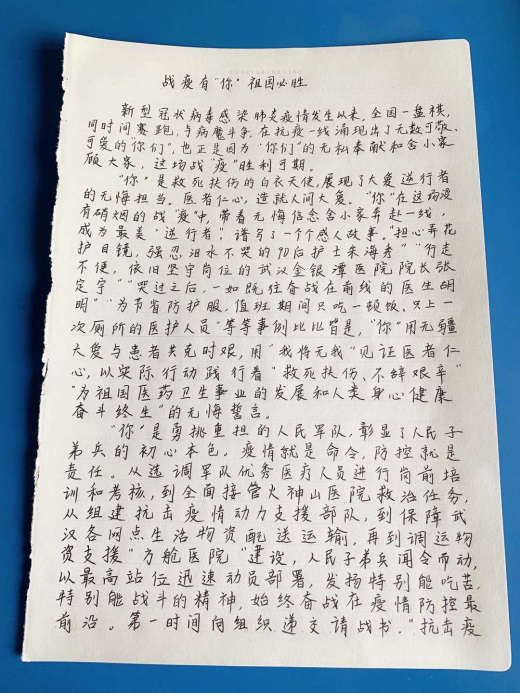 战疫有“你” 祖国必胜
新型冠状病毒感染肺炎疫情发生以来,全国一盘棋,
同时间赛跑,与病魔斗争,在抗疫一线涌现出了无数可敬、
可爱的“你们”,也正是因为“你们”的无私奉献和舍小家
顾大家,这场战“疫”胜利可期。
“你”是救死扶伤的白衣天使,展现了大爱逆行者
的无悔担当。医者仁心,造就人间大爱。“你”在这场没
有硝烟的战“疫”中,带着无悔信念舍小家奔赴一线,
成为最美“逆行者”,谱写了一个个感人故事。“担心弄花
护目镜,强忍泪水不哭的90后护士来海秀”“行走
不便,依旧坚守岗位的武汉金银潭医院院长张
定宇”“哭过之后,一如既往奋战在前线的医生明
明”“为节省防护服,值班期间只吃一顿饭、只上一
次厕所的医护人员”等等事例比比皆是,“你”用无疆
大爱与患者共克时艰,用“我将无我”见证医者仁
心,以实际行动践行着“救死扶伤、不辞艰辛”
“为祖国医药卫生事业的发展和人类身心健康
奋斗终生”的无悔誓言。
“你”是勇挑重担的人民军队,彰显了人民子
弟兵的初心本色。疫情就是命令,防控就是
责任。从选调军队优秀医疗人员进行岗前培
训和考核,到全面接管火神山医院救治任务,
从组建抗击疫情动力支援部队,到保障武
汉各网点生活物资配送运输,再到调运物
资支援“方舱医院”建设,人民子弟兵闻令而动,
以最高站位迅速动员部署,发扬特别能吃苦、
特别能战斗的精神,始终奋战在疫情防控最
前沿。第一时间向组织递交请战书,“抗击疫